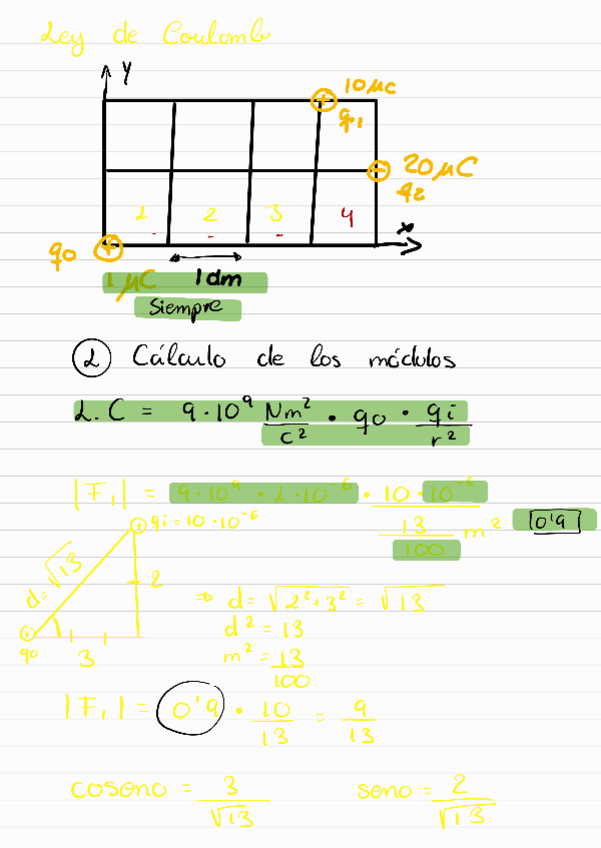 Ley de Coulomb
y
10 μC
q1
20 μC
q2
1 2 3 4
x
q0
1 μC 1 dm
Siempre
① Cálculo de los módulos
L.C = 9·10⁹ Nm²/C² · q0 · qi/r²
|F₁| = 9·10⁹ · 1·10⁻⁶ · 10·10⁻⁶ / 13/100 m² 0'9
qi = 10·10⁻⁶
d=√13
2
q0
3
⇒ d = √2²+3² = √13
d² = 13
m² = 13/100
|F₁| = 0'9 · 10/13 = 9/13
coseno = 3/√13 seno = 2/√13